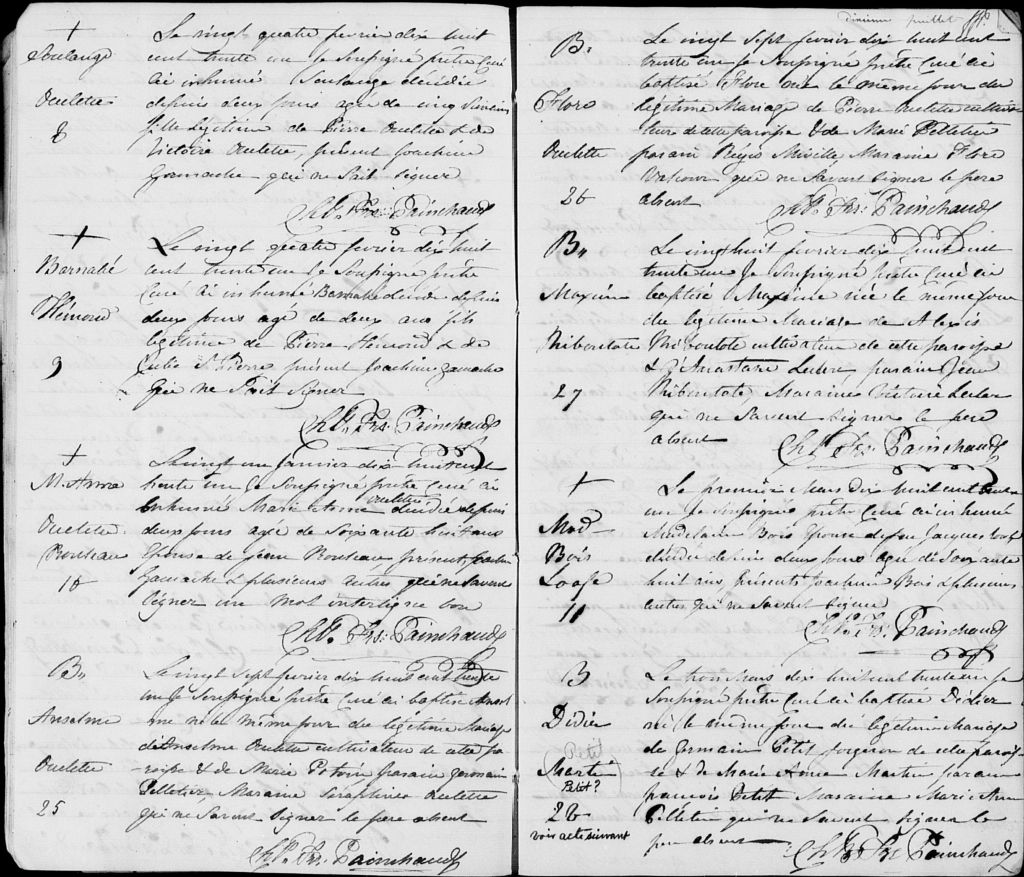 +
Soulange
Ouelette
8
Le vingt quatre fevrier dix huit
cent trente un je Soussigné prêtre Curé
ai inhumé Soulange décédée
depuis deux jours agée de cinq Semaines
fille Légitime de Pierre Ouelette & de
Victoire Ouelette, présent Joachim
Gamache qui ne Sait Signer
Chs. Frs: Painchaud
+
Barnabé
Hémond
9
Le vingt quatre fevrier dix huit
cent trente un Je Soussigné prêtre
Curé ai inhumé Barnabé décédé depuis
deux jours agé de deux ans fils
legitime de Pierre Hémond & de
Julie St Pierre présent Joachim Gamache
qui ne Sait Signer
Chs. Frs: Painchaud
+
M. Anna
Ouelette
Bouteau
10
Le vingt un Janvier dix huit cent
trente un Je Soussigné prêtre Curé ai
Ouelette
inhumé Marie Anne décédée depuis
deux jours agée de Soixante huit ans
Epouse de Jean Bouteau, présents Joachim
Gamache & plusieurs autres qui ne Savent
Signer un mot interligne bon
Chs. Frs: Painchaud
B.,
Anselme
Ouelette
25
Le vingt Sept fevrier dix huit cent trente
un Je Soussigné prêtre Curé ai baptisé Ansel
me né le même jour du legitime Mariage
d'Anselme Ouelette cultivateur de cette pa
roisse & de Marie Potvin parain Germain
Pelletier, Maraine Seraphine Ouelette
qui ne Savent Signer le père absent
Chs. Frs: Painchaud
dixième juillet
B.
Flore
Ouelette
26
Le vingt Sept fevrier dix huit cent
trente un Je Soussigné prêtre Curé ai
baptisé Flore née le même jour du
legitime Mariage de Pierre Ouelette cultiva
teur de cette paroisse & de Marie Pelletier
parain Régis Miville Maraine Flore
qui ne Savent Signer le père
absent
Chs. Frs: Painchaud
B.,
Maxime
Thiboutote
27
Le vingt huit fevrier dix huit cent
trente un Je Soussigné prêtre Curé ai
baptisé Maxime née le même jour
du légitime Mariage de Alexis
Thiboutote cultivateur de cette paroisse
& d'Anastasie Leclerc, parain Jean
Thiboutote Maraine Victoire Leclerc
qui ne Savent Signer le père
absent
Chs. Frs: Painchaud
+
Mad.
Bois
Loofe
11
Le premier Mars dix huit cent trente
un Je Soussigné prêtre Curé ai inhumé
Madelaine Bois Epouse de feu Jacques Loof
décédée depuis deux jours agée de Soixante
huit ans présents Joachim Bois & plusieurs
autres qui ne Savent Signer
Chs. Frs: Painchaud
B
Didier
Petit
Martin
Petit?
26
voir acte suivant
Le trois Mars dix huit cent trente un je
Soussigné prêtre Curé ai baptisé Didier
né le même jour du légitime Mariage
de Germain Petit forgeron de cette parois
se & de Marie Anne Martin parain
francois Petit Maraine Marie Anne
Pelletier qui ne Savent Signer le
père absent
Chs. Frs: Painchaud